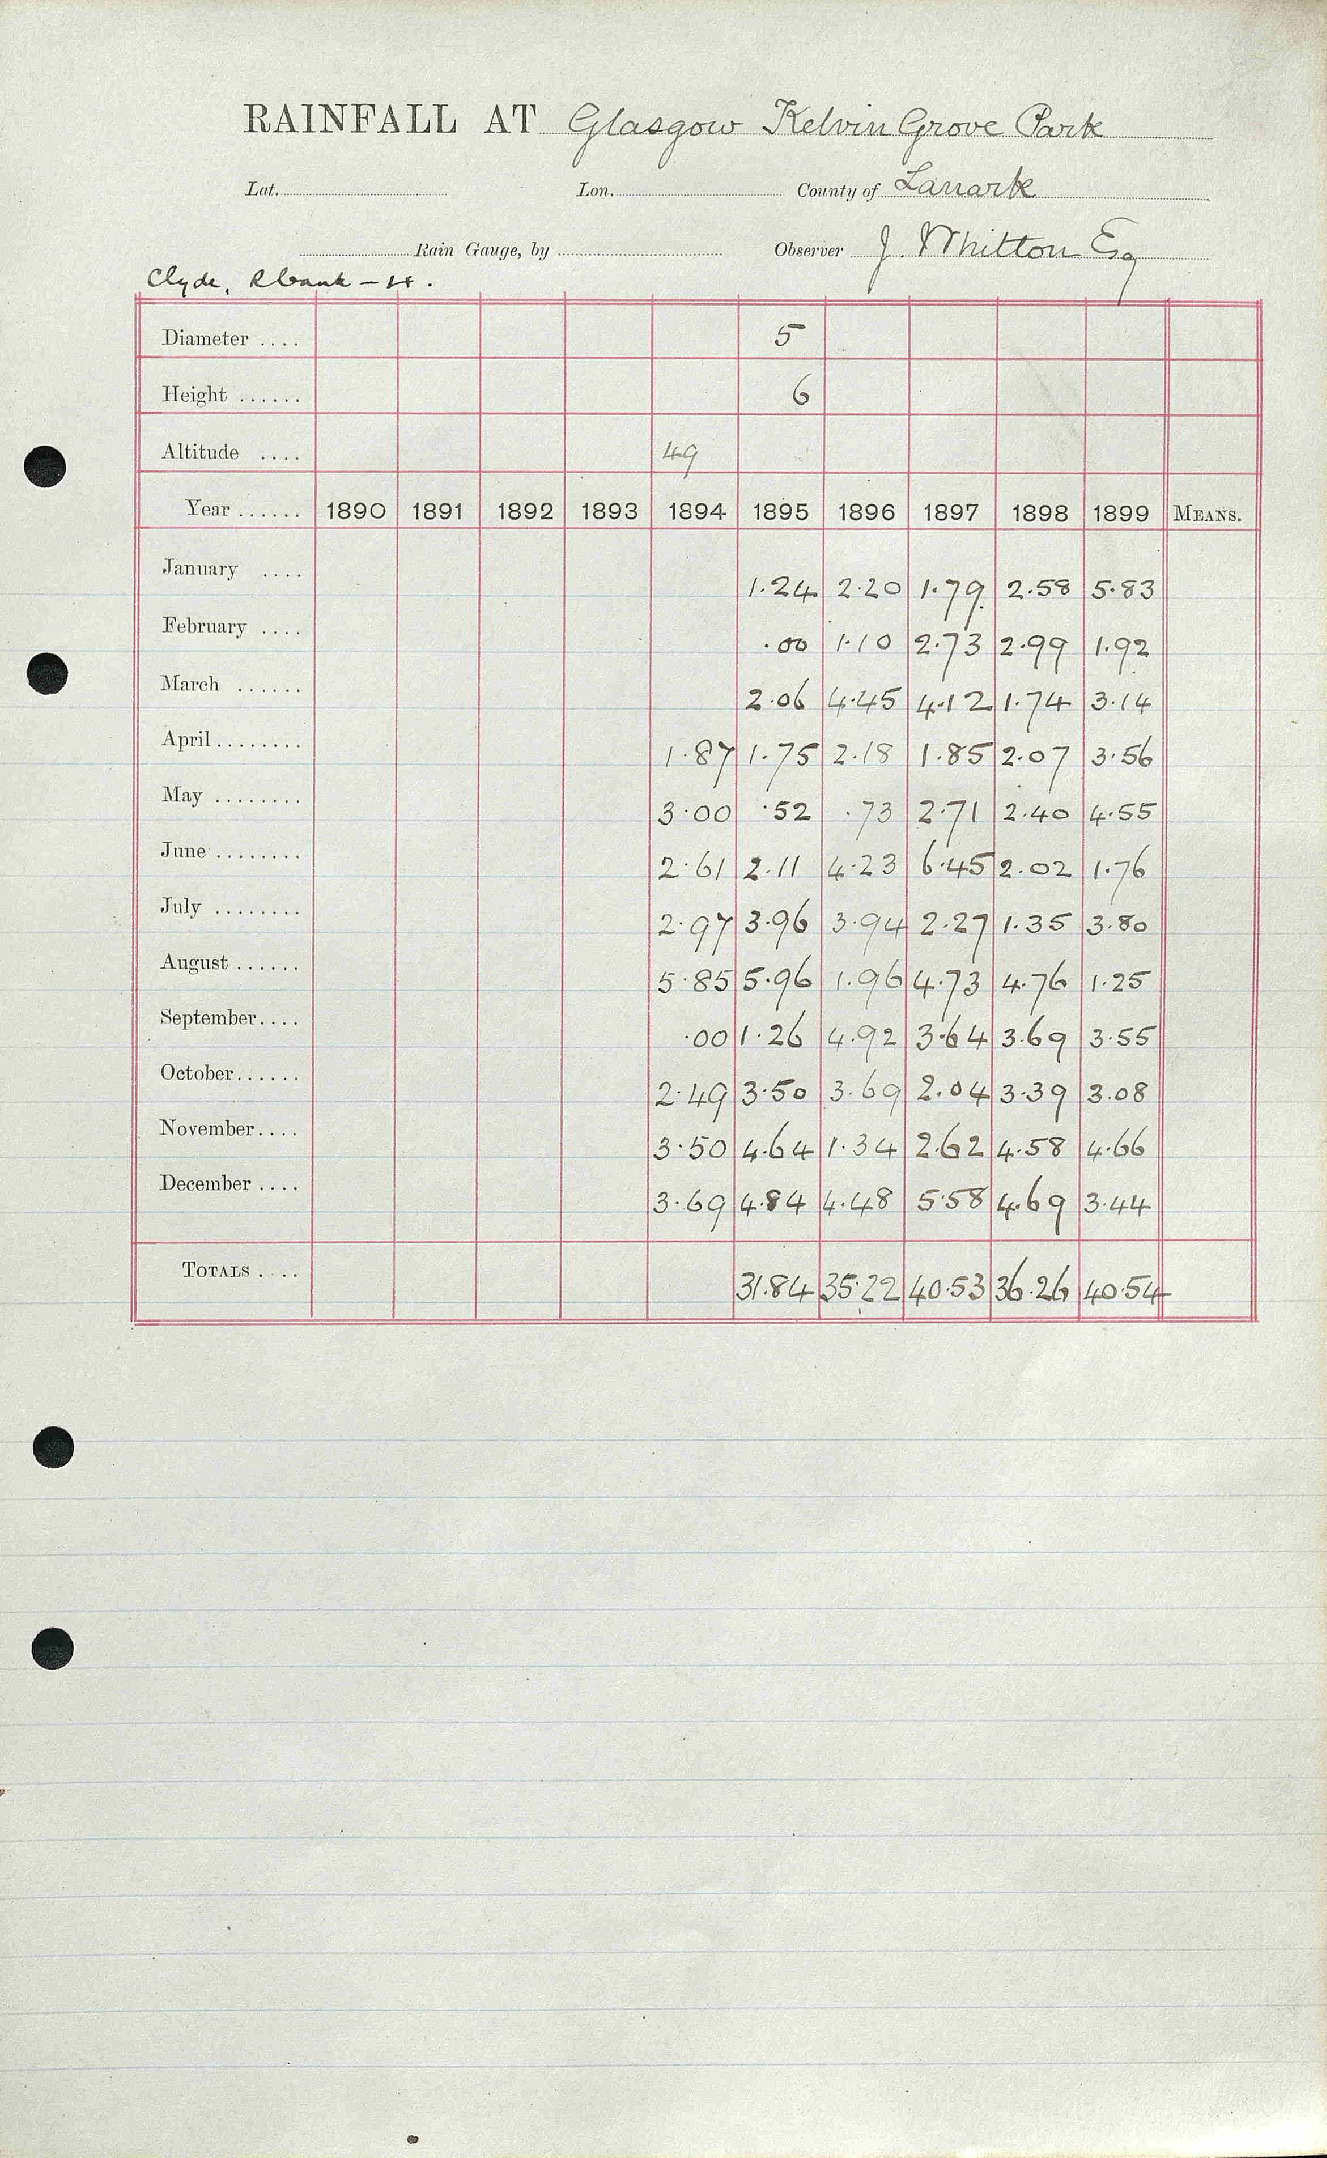 RAINFALL AT Glasgow Kelvin Grove Park
Lat. Lon. County of Lanark
Rain Gauge, by Observer J. Whitton Esq
Clyde, R bank - H.
Diameter .... 5
Height ...... 6
Altitude .... 49
Year ...... 1890 1891 1892 1893 1894 1895 1896 1897 1898 1899 MEANS.
January .... 1.24 2.20 1.79 2.58 5.83
February .... .00 1.10 2.73 2.99 1.92
March ...... 2.06 4.45 4.12 1.74 3.14
April ........ 1.87 1.75 2.18 1.85 2.07 3.56
May ........ 3.00 .52 .73 2.71 2.40 4.55
June ........ 2.61 2.11 4.23 6.45 2.02 1.76
July ........ 2.97 3.96 3.94 2.27 1.35 3.80
August ...... 5.85 5.96 1.96 4.73 4.76 1.25
September.... .00 1.26 4.92 3.64 3.69 3.55
October...... 2.49 3.50 3.69 2.04 3.39 3.08
November.... 3.50 4.64 1.34 2.62 4.58 4.66
December .... 3.69 4.84 4.48 5.58 4.69 3.44
TOTALS .... 31.84 35.22 40.53 36.26 40.54